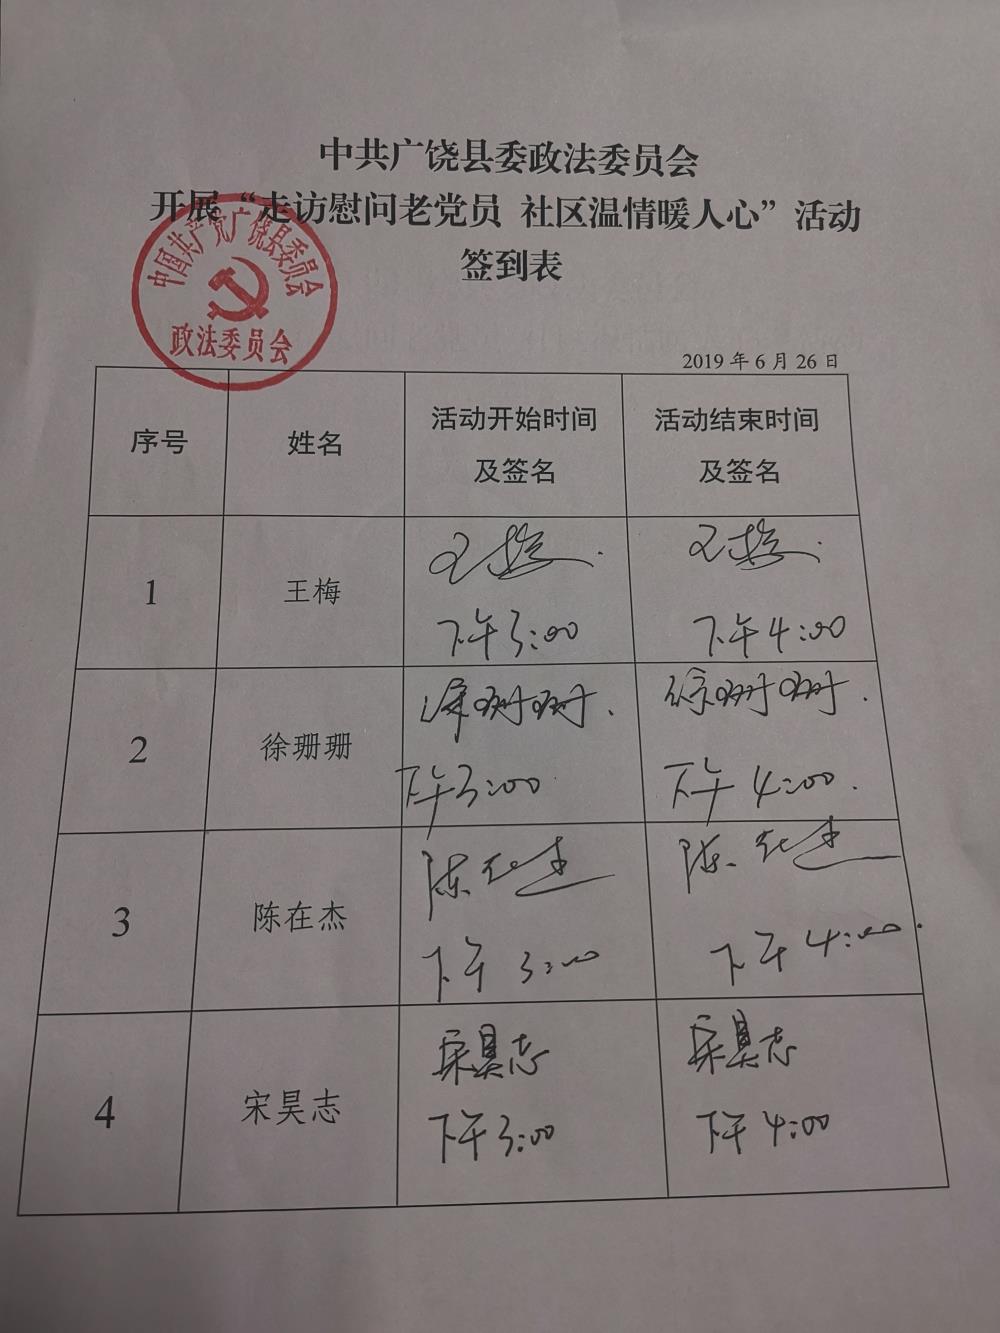 中共广饶县委政法委员会
开展“走访慰问老党员 社区温情暖人心”活动
签到表
中国共产党广饶县委员会
政法委员会
2019年6月26日
序号 姓名 活动开始时间 活动结束时间
及签名 及签名
1 王梅 王梅. 王梅.
下午3:00 下午4:00
2 徐珊珊 徐珊珊. 徐珊珊.
下午3:00 下午4:00.
3 陈在杰 陈在杰 陈在杰
下午3:00 下午4:00.
4 宋昊志 宋昊志 宋昊志
下午3:00 下午4:00